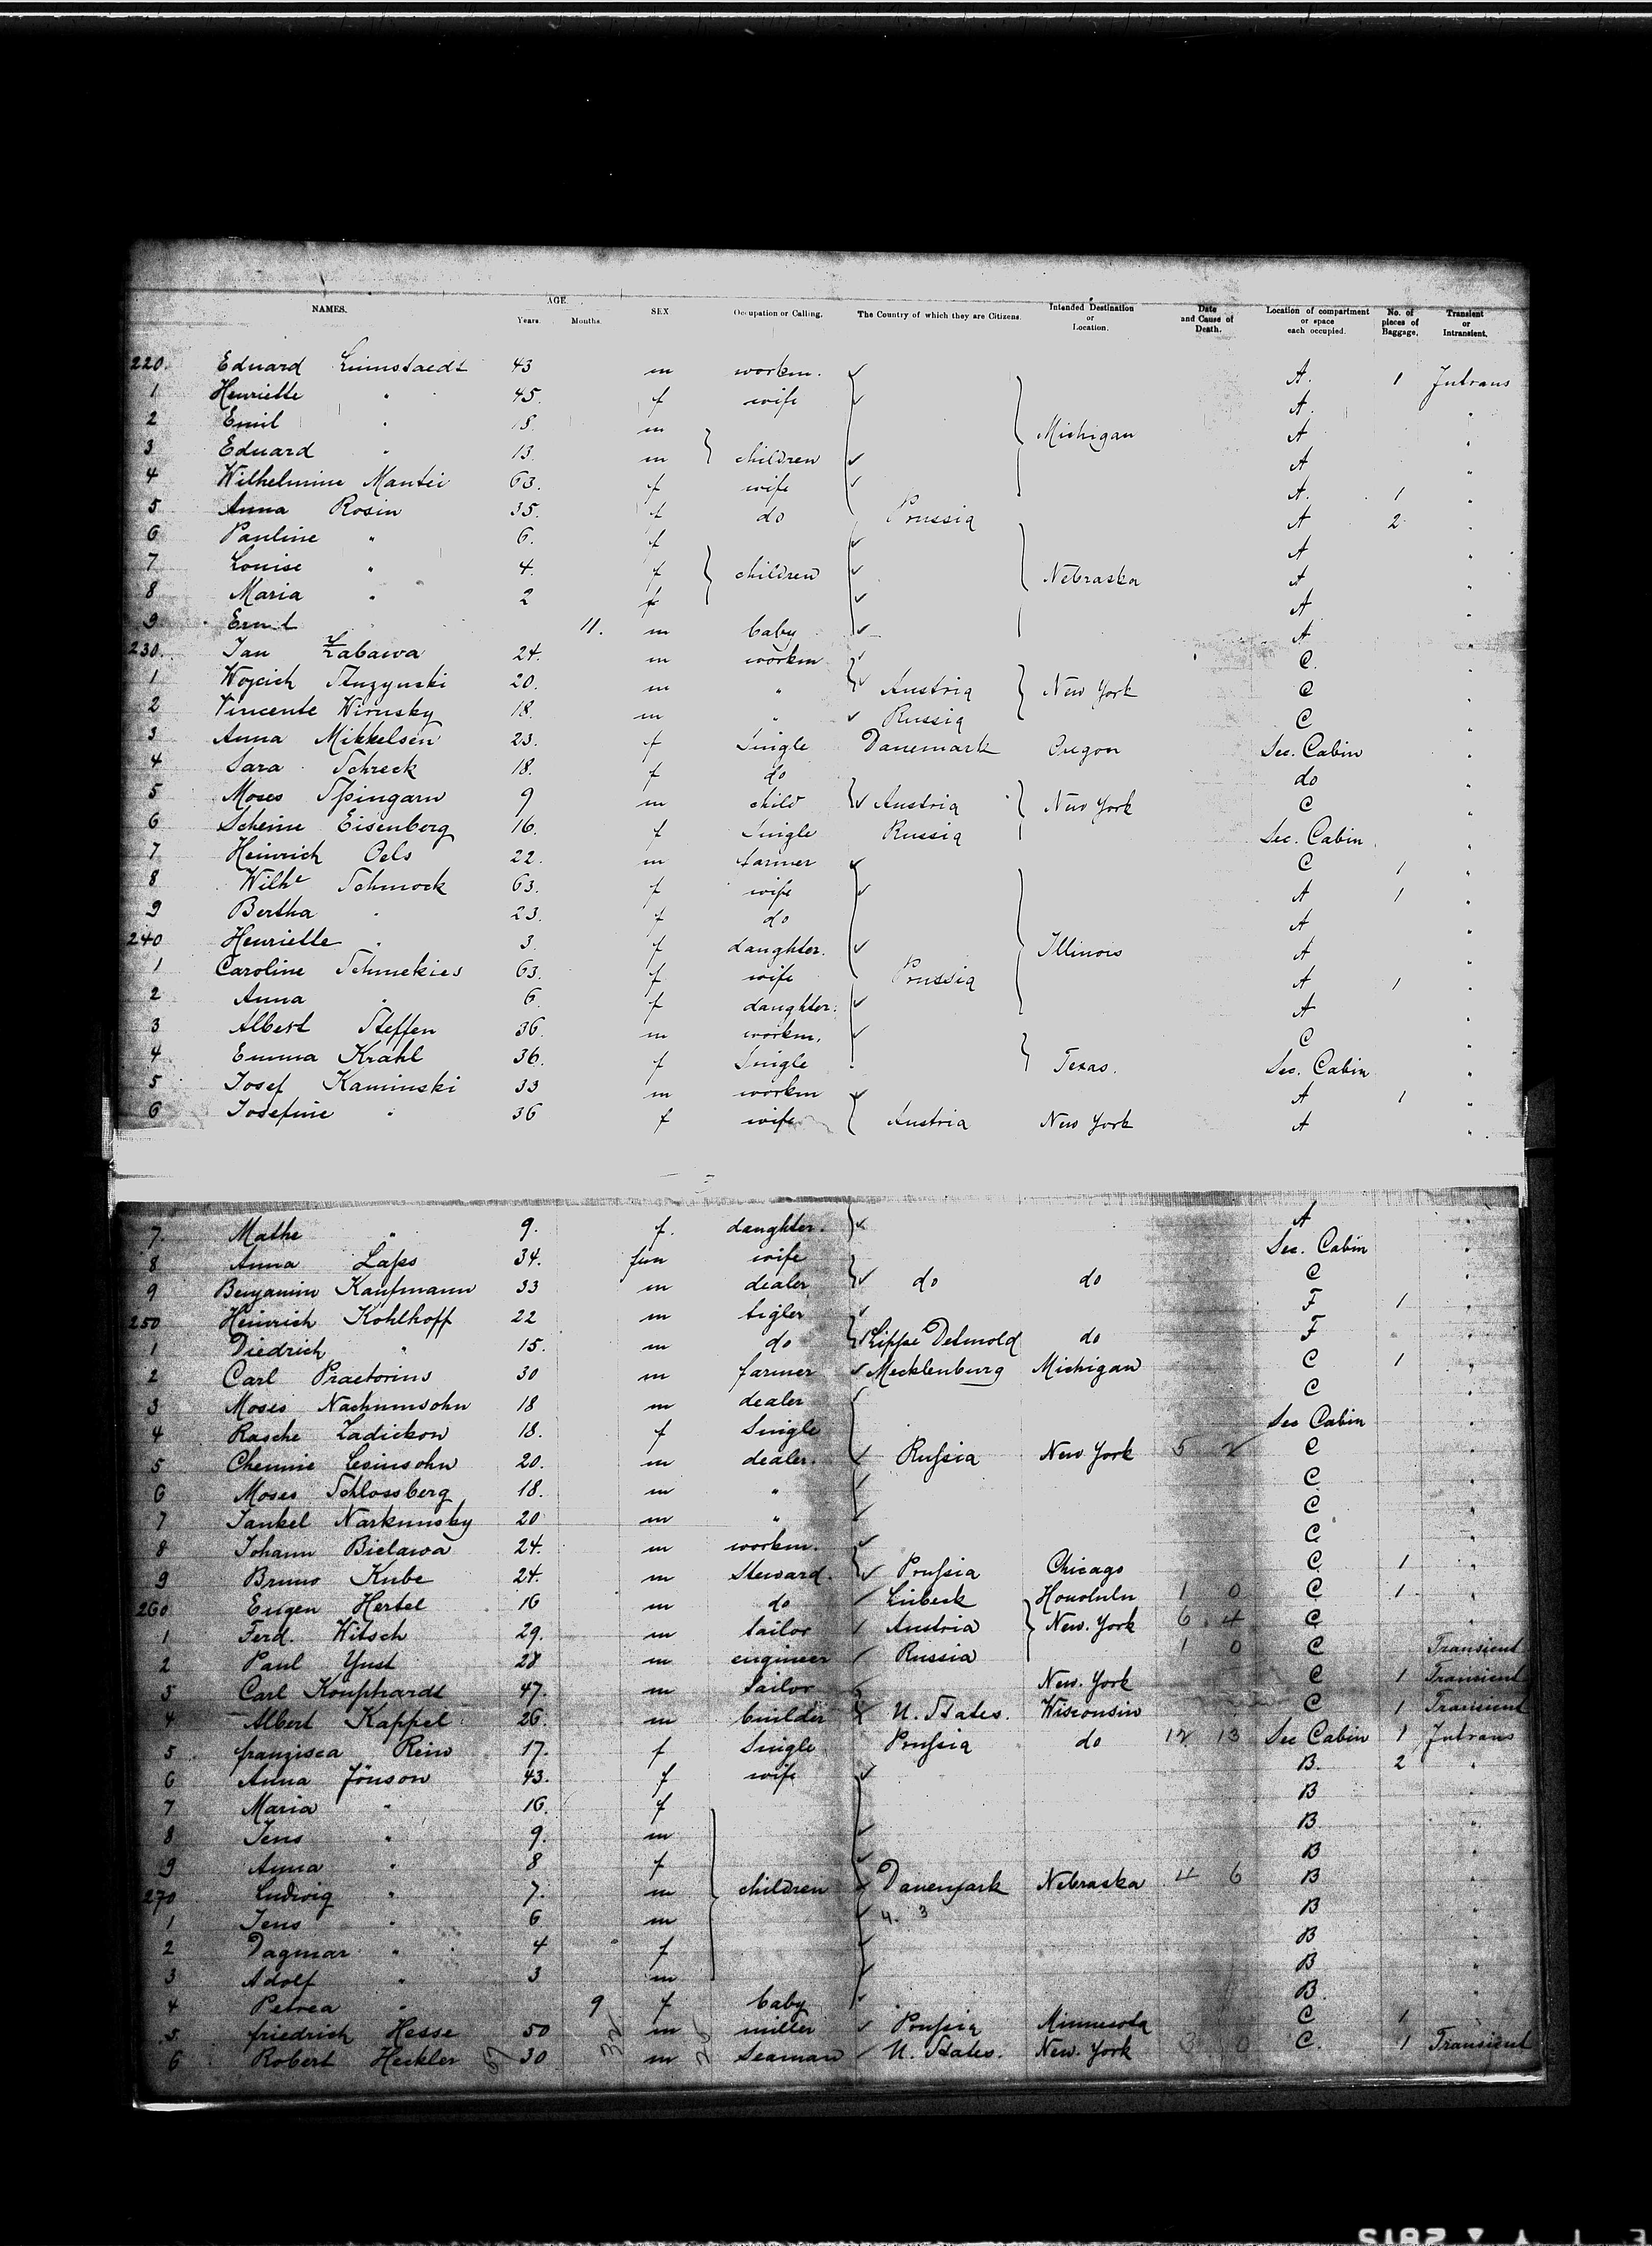 NAMES. AGE. Years. Months. SEX Occupation or Calling. The Country of which they are Citizens. Intended Destination or Location. Date and Cause of Death. Location of compartment or space each occupied. No. of pieces of Baggage. Transient or Intransient.
220. Eduard 43 m workm. A. 1 Intrans
1 Henriette " 45. f wife A. "
2 Emil " 18. m Michigan A "
3 Eduard " 13. m children A "
4 Wilhelmine Mantei 63. f wife A. 1 "
5 Anna Rosin 35. f do Prussia A 2 "
6 Pauline " 6. f A "
7 Louise " 4. f children Nebraska A "
8 Maria " 2 f A "
9 " 11. m baby A "
230. Jan Zabawa 24. m workm C. "
1 Wojcich 20. m " Austria New York C "
2 Vincente Wirnsky 18. m " Russia C "
3 Anna Mikkelsen 23. f Single Danemark Oregon Sec. Cabin "
4 Sara Schreck 18. f do do "
5 Moses Spingarn 9 m child Austria New York C "
6 Scheine Eisenberg 16. f Single Russia Sec. Cabin "
7 Heinrich Oels 22. m farmer C 1 "
8 Wilhe Schmock 63. f wife A 1 "
9 Bertha " 23. f do A "
240 Henriette " 3 f daughter. Illinois A "
1 Caroline Schmekies 63. f wife Prussia A 1 "
2 Anna " 6 f daughter. A "
3 Albert Steffen 36. m workm. C "
4 Emma Krahl 36. f Single Texas. Sec. Cabin "
5 Josef Kaminski 33 m workm A 1 "
6 Josefine " 36 f wife Austria New York A "
7. Mathe " 9. f. daughter. A "
8 Anna Laps 34. fem wife Sec. Cabin "
9 Benjamin Kaufmann 33 m dealer do do C "
250 Heinrich Kohlhoff 22 m tigler F 1 "
1 Diedrich " 15. m do Lippe Detmold do F "
2 Carl Praetorius 30 m farmer Mecklenburg Michigan C 1 "
3 Moses Nachumsohn 18 m dealer C "
4 Rasche Ladickow 18. f Single Sec Cabin "
5 Chemie 20. m dealer. Russia New York 5 2 C "
6 Moses Schlossberg 18. m " C "
7 Jankel Narkunsky 20 m " C "
8 Johann Bielawa 24. m workm. C "
9 Bruno Kube 24. m Steward. Prussia Chicago C 1 "
260 Eugen Hertel 16 m do Lübeck Honolulu 1 0 C 1 "
1 Ferd. Witsch 29. m tailor Austria New. York 6 4 C "
2 Paul Yust 28 m engineer Russia 1 0 C Transient
3 Carl Kouphardt 47. m tailor New. York C 1 Transient
4 Albert Kappel 26. m builder U. States. Wisconsin C 1 Transient
5 franzisca Rein 17. f Single Prussia do 12 13 Sec Cabin 1 Intrans
6 Anna Jönson 43. f wife B. 2 "
7 Maria " 16. f B "
8 Jens " 9. m B. "
9 Anna " 8 f B "
270 Ludwig " 7. m children Danemark Nebraska 4 6 B "
1 Jens " 6 m 4. 3 B "
2 Dagmar " 4 f B "
3 Adolf " 3 m B "
4 Petrea " 9 f baby B. "
5. friedrich Hesse 50 m miller Prussia Minnesota C 1 "
6 Robert Heckler 30 m Seaman U. States. New. York 3 0 C. 1 Transient